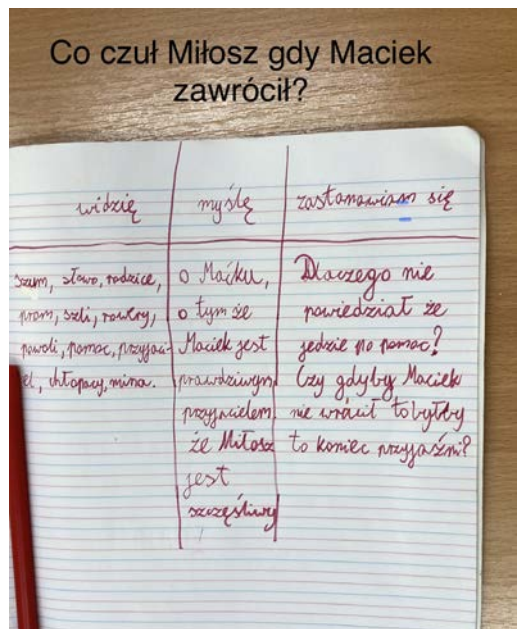 Co czuł Miłosz gdy Maciek
zawrócił?
widzię
myślę
zastanawiam się
szum, słowo, rodzice,
prom, szli, rowery,
powoli, pomoc, przyjaci-
el, chłopacy, mina.
o Maćku,
o tym że
Maciek jest
prawdziwym
przyjacielem
że Miłosz
jest
szczęśliwy
Dlaczego nie
powiedział że
jedzie po pomoc?
Czy gdyby Maciek
nie wrócił to byłby
to koniec przyjaźni?